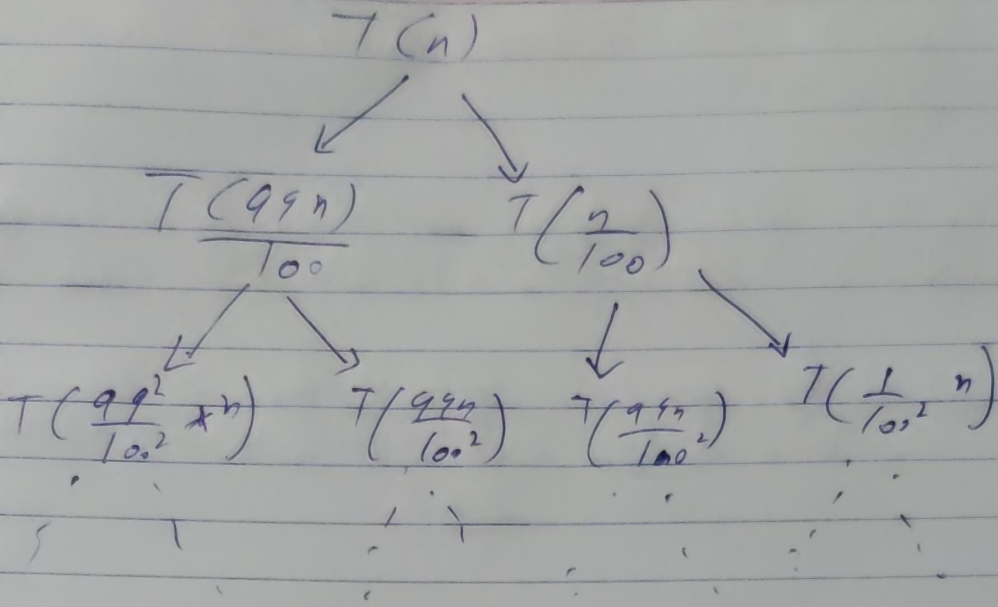 T(n)
T(99n)/100 T(n/100)
T(99²/100² * n) T(99n/100²) T(99n/100²) T(1/100² n)